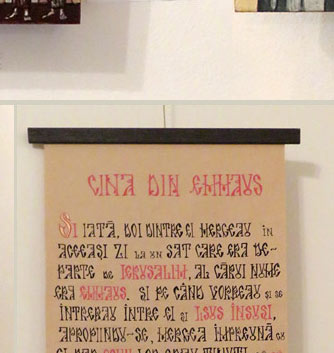 CINA DIN EMMAUS
SI IATĂ, DOI DINTRE EI MERGEAU ÎN
ACEEAȘI ZI LA UN SAT CARE ERA DE-
PARTE DE IERUSALIM, AL CĂRUI NUME
ERA EMMAUS. ȘI PE CÂND VORBEAU ȘI SE
ÎNTREBAU ÎNTRE EI ȘI ISUS ÎNSUȘI,
APROPIINDU-SE, MERGEA ÎMPREUNĂ CU
EI DAR